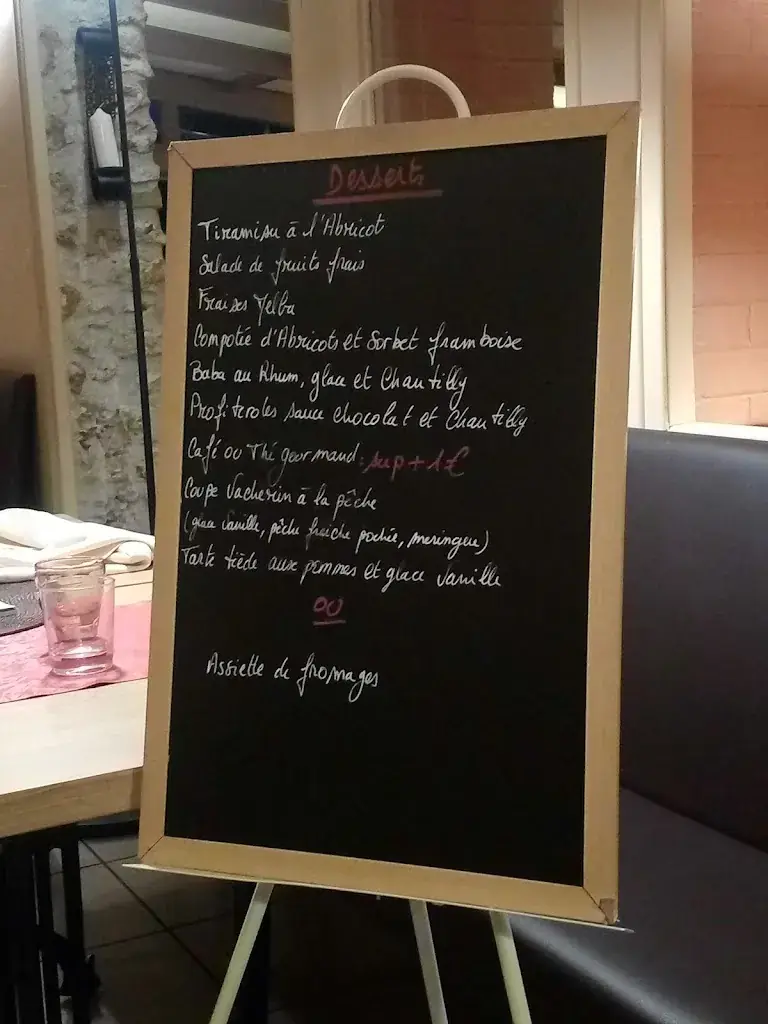 Desserts
Tiramisu à l'Abricot
Salade de fruits frais
Fraises Melba
Compotée d'Abricots et Sorbet framboise
Baba au Rhum, glace et Chantilly
Profiteroles sauce chocolat et Chantilly
Café ou Thé gourmand : sup + 1€
Coupe Vacherin à la pêche
(glace vanille, pêche fraiche pochée, meringue)
Tarte tiède aux pommes et glace Vanille
ou
Assiette de fromages